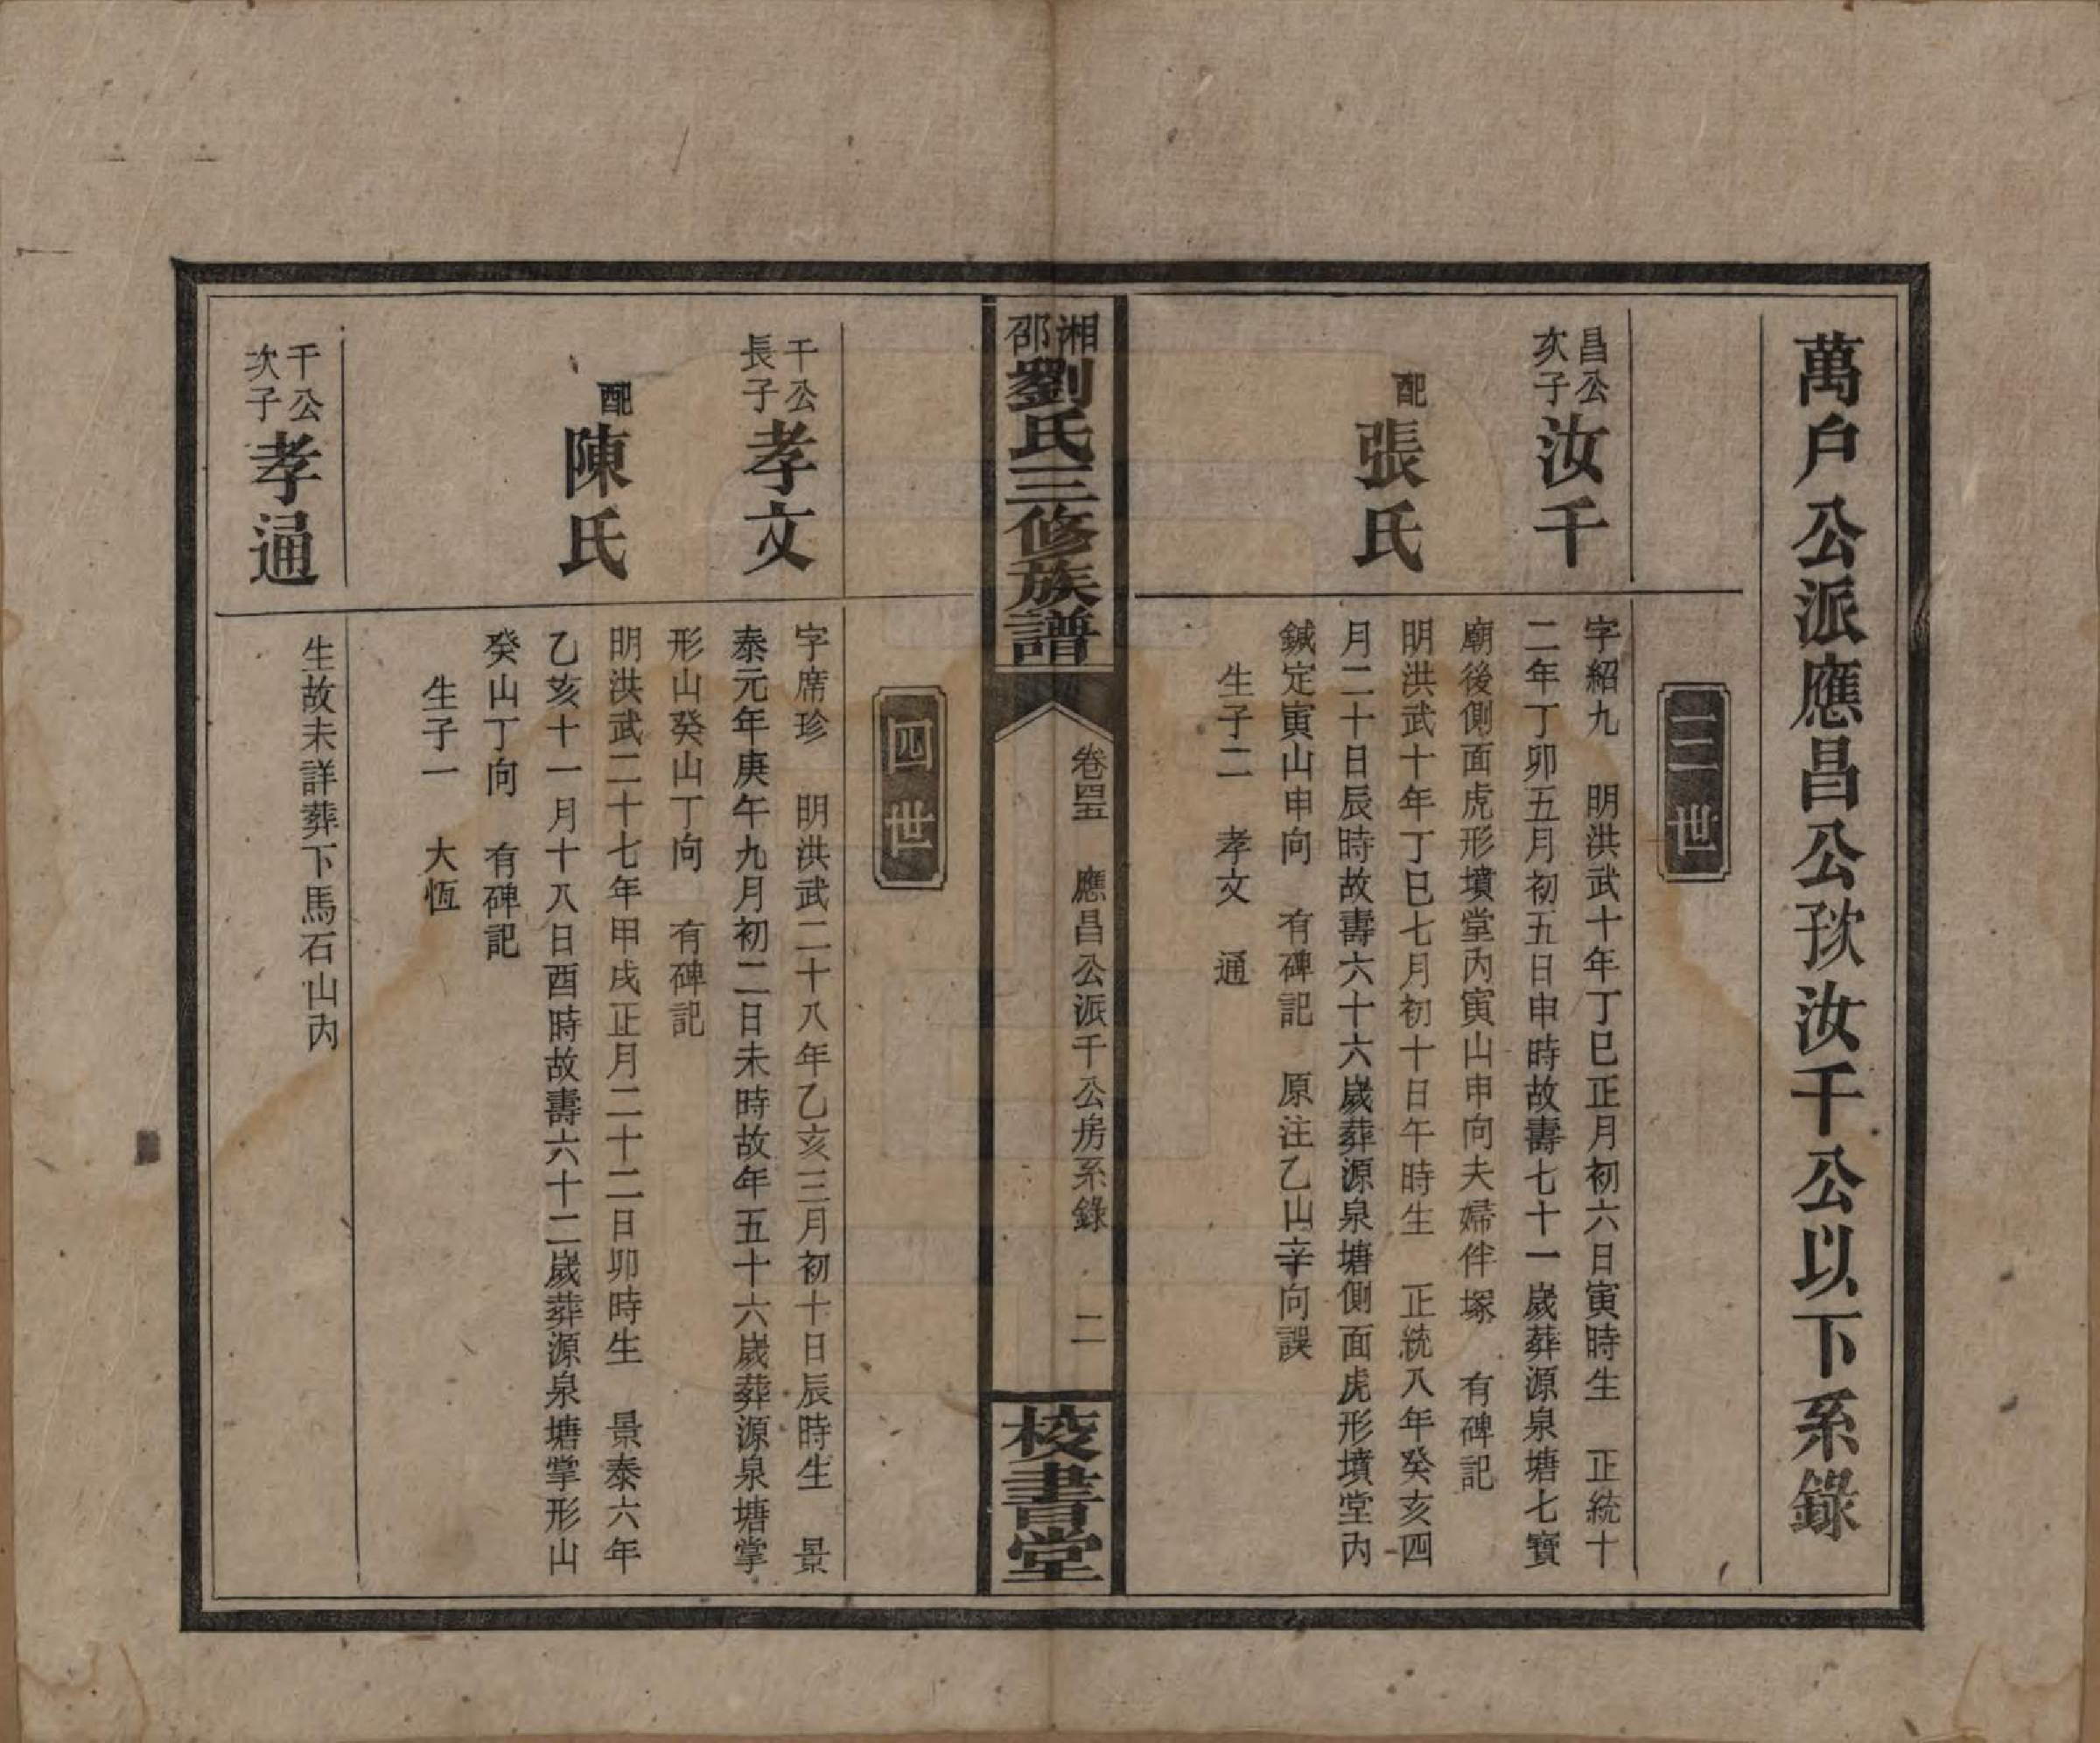 萬戶公派應昌公次汝千公以下系錄
三世
昌公
次子
汝千
字紹九　明洪武十年丁巳正月初六日寅時生　正統十
二年丁卯五月初五日申時故壽七十一歲葬源泉塘七寶
廟後側面虎形墳堂內寅山申向夫婦伴塚　有碑記
配
張氏
明洪武十年丁巳七月初十日午時生　正統八年癸亥四
月二十日辰時故壽六十六歲葬源泉塘側面虎形墳堂內
鍼定寅山申向　有碑記　原注乙山辛向誤
生子二　孝文　通
湘邵
劉氏三修族譜
卷四五　應昌公派千公房系錄　二
校書堂
四世
千公
長子
孝文
字席珍　明洪武二十八年乙亥三月初十日辰時生　景
泰元年庚午九月初二日未時故年五十六歲葬源泉塘掌
形山癸山丁向　有碑記
配
陳氏
明洪武二十七年甲戌正月二十二日卯時生　景泰六年
乙亥十一月十八日酉時故壽六十二歲葬源泉塘掌形山
癸山丁向　有碑記
生子一　大恆
千公
次子
孝通
生故未詳葬下馬石山內